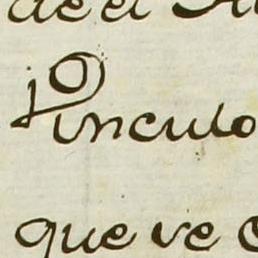 de el
Vinculo
que ve